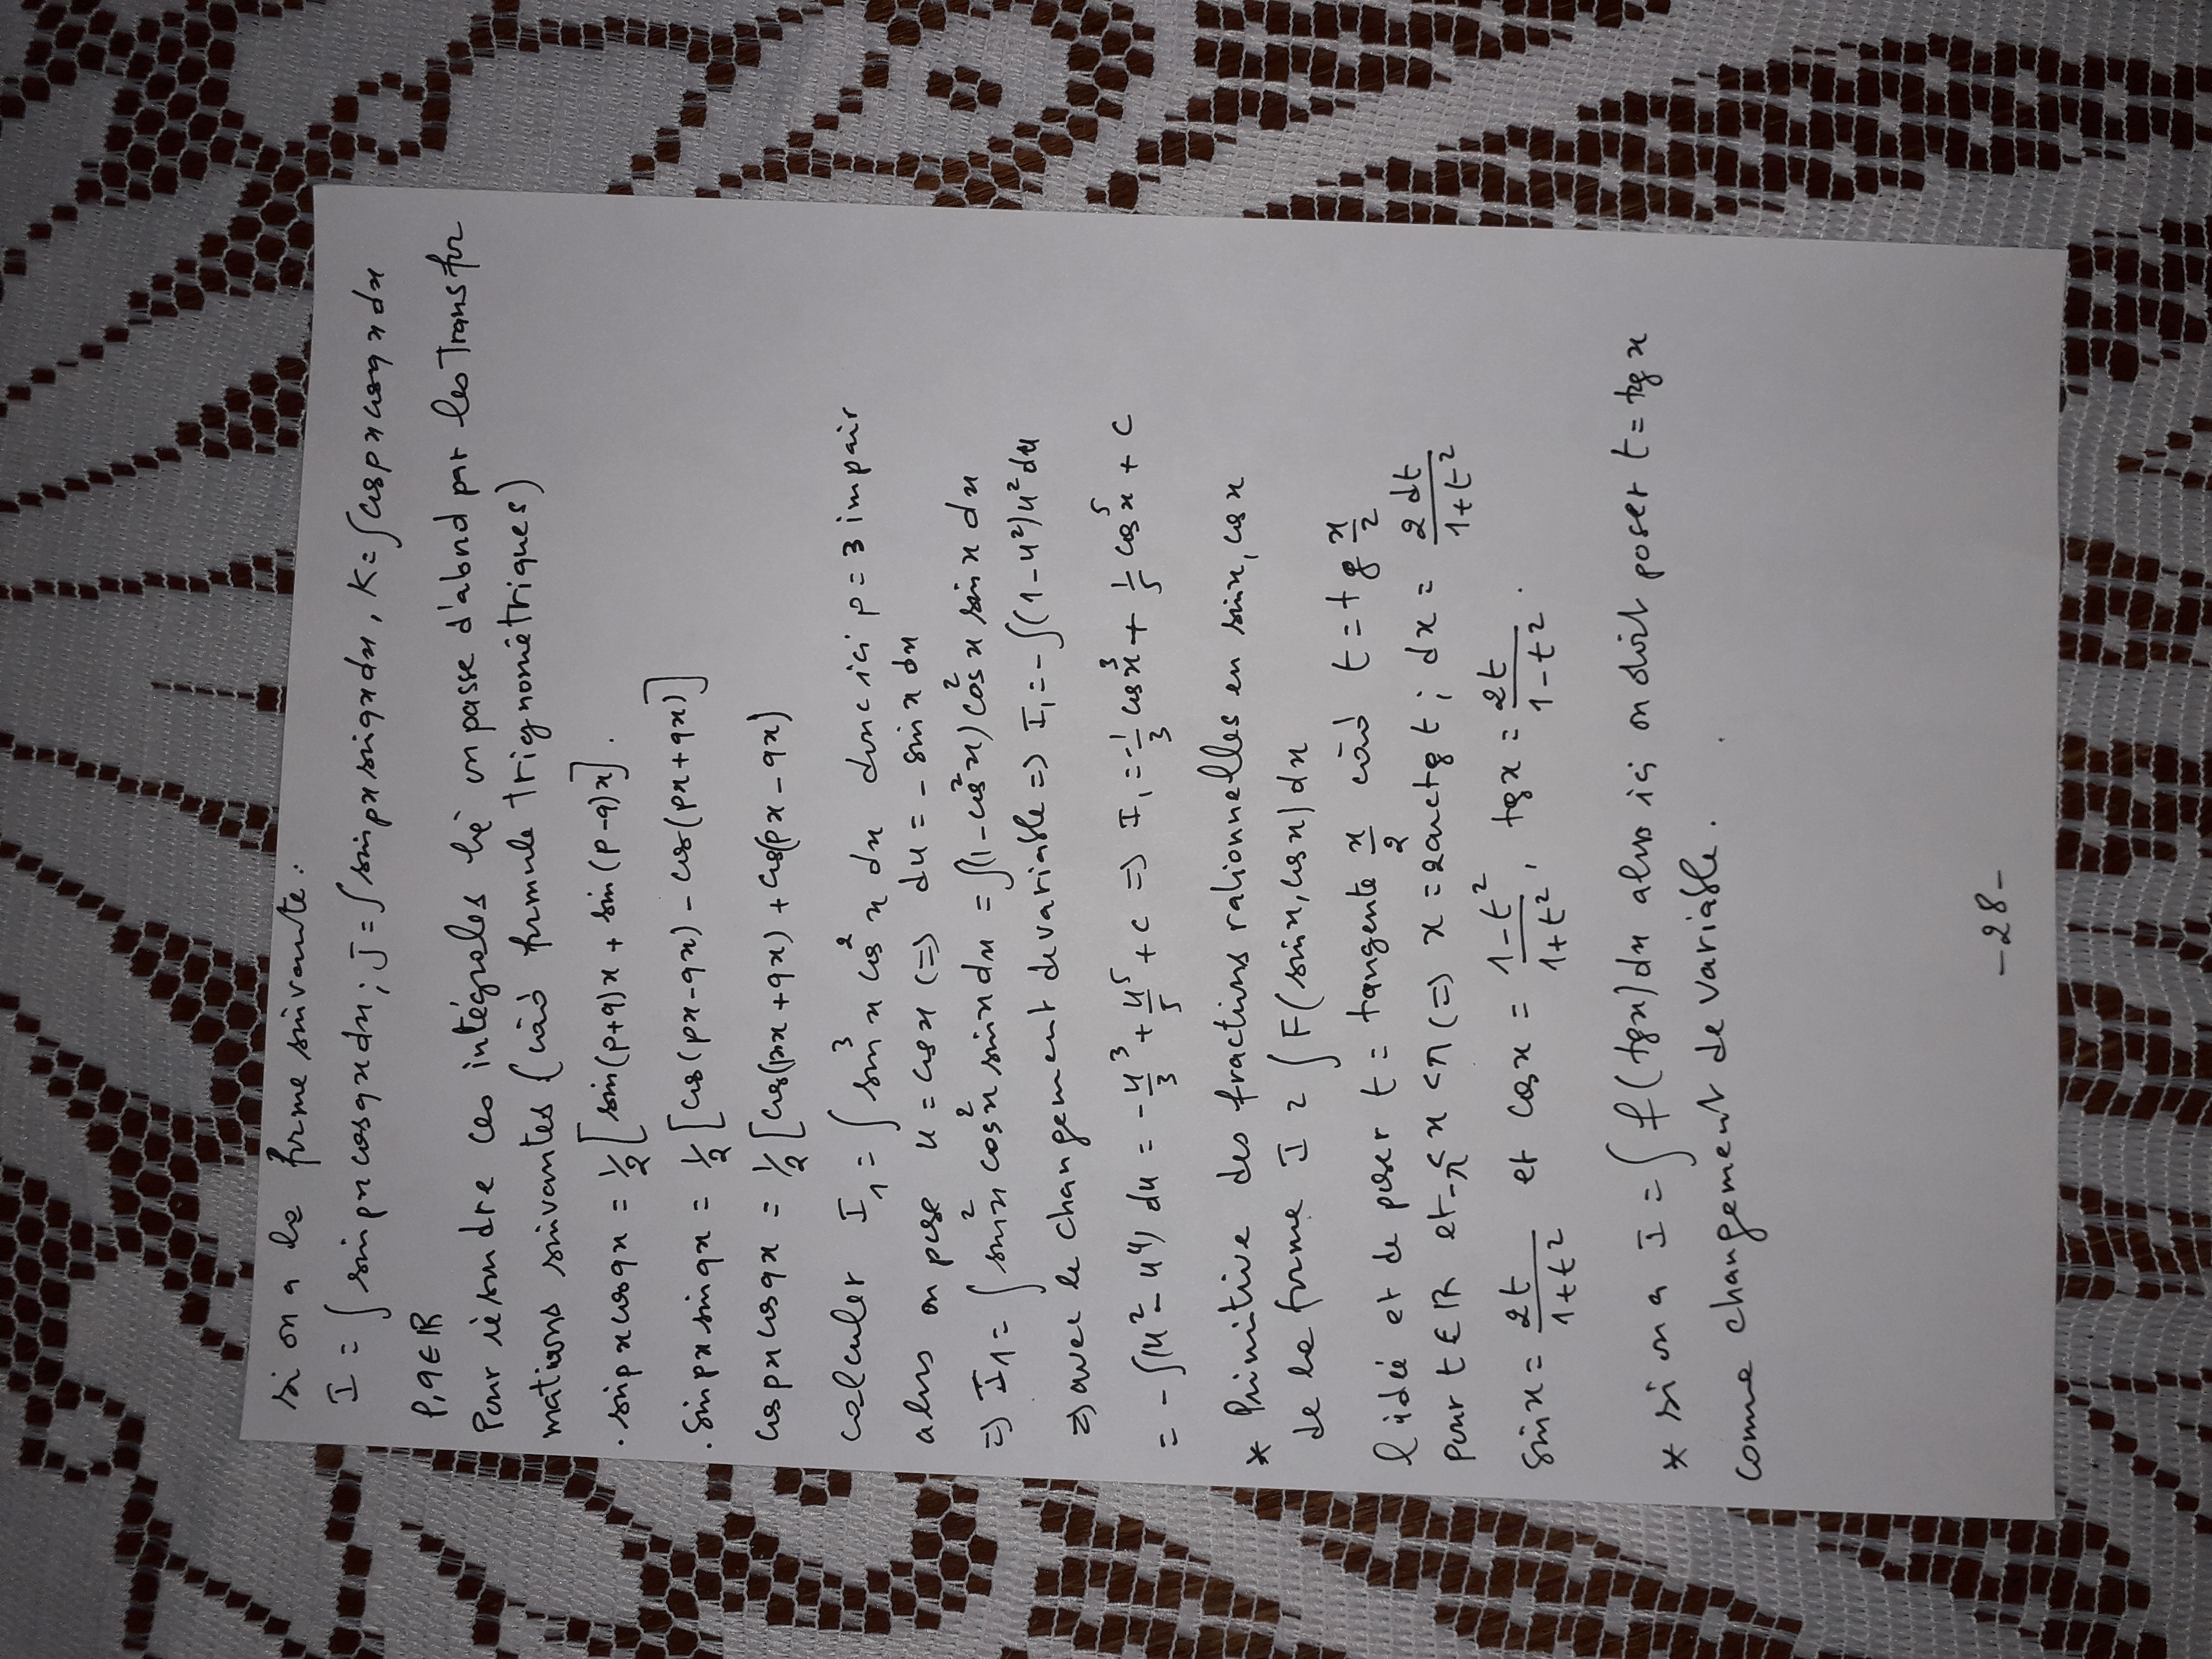 si on a la forme suivante:
I = ∫ sin px cos qx dx ; J = ∫ sin px sin qx dx , K = ∫ cos px cos qx dx
p, q ∈ ℝ
Pour résoudre ces intégrales on passe d'abord par les Transfor
mations suivantes (càd formule trignométriques)
. sin px cos qx = 1/2 [ sin(p+q)x + sin(p-q)x ] .
. sin px sin qx = 1/2 [ cos(px-qx) - cos(px+qx) ]
cos px cos qx = 1/2 [ cos(px+qx) + cos(px-qx)
calculer I₁ = ∫ sin³x cos²x dx donc ici p = 3 impair
alors on pose u = cos x (=> du = - sin x dx
=> I₁ = ∫ sin²x cos²x sin x dx = ∫(1-cos²x) cos²x sin x dx
=> avec le changement de variable => I₁ = - ∫(1-u²)u² du
= - ∫(u² - u⁴) du = - u³/3 + u⁵/5 + c => I₁ = -1/3 cos³x + 1/5 cos⁵x + c
* Primitive des fractions rationnelles en sin x, cos x
de la forme I = ∫ F(sin x, cos x) dx
l'idée et de poser t = tangente x/2 càd t = tg x/2
Pour t ∈ ℝ et -π < x < π (=> x = 2 arctg t ; dx = 2dt/(1+t²)
sin x = 2t/(1+t²) et cos x = (1-t²)/(1+t²) , tg x = 2t/(1-t²) .
* si on a I = ∫ f(tg x) dx alors ici on doit poser t = tg x
comme changement de variable.
-28-